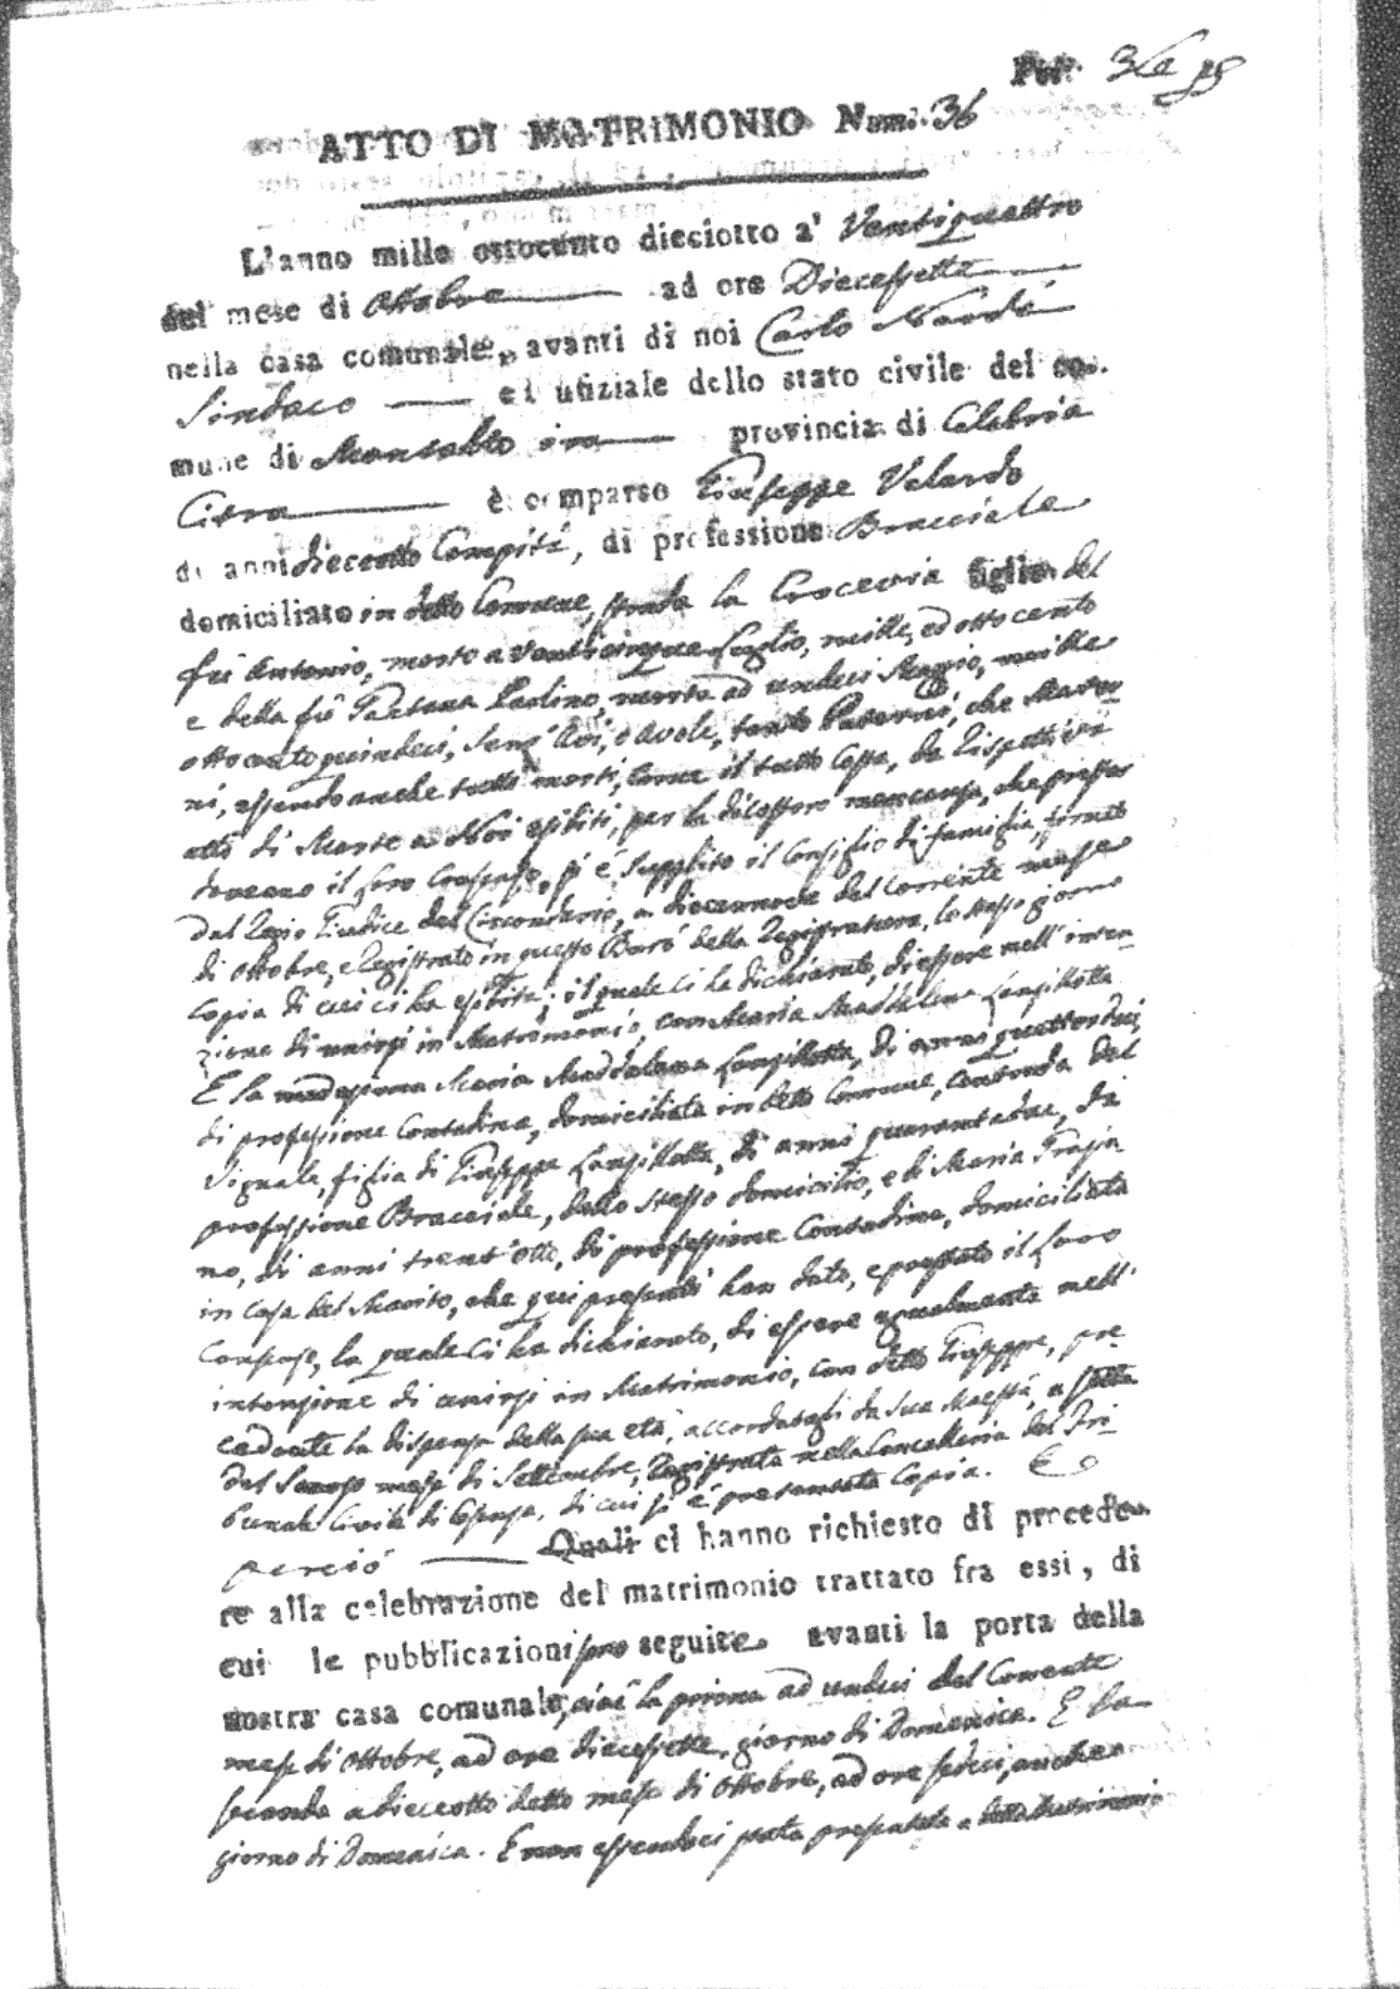 36
ATTO DI MATRIMONIO Num. 36
L'anno mille ottocento dieciotto a' Ventiquattro
del mese di Ottobre ad ore Diecessette
nella casa comunale, avanti di noi Carlo Nardi
Sindaco ed ufiziale dello stato civile del co-
mune di Montalto provincia di Calabria
Citra è comparso Giuseppe Velardo
di anni diecotto Compiti, di professione Bracciale
domiciliato in detto Comune, strada la Crocevia figlio del
fù Antonio, morto a venticinque Luglio, mille, ed ottocento
e della fù Gaetana Paolino, morta ad undeci Maggio, mille
ottocento quindeci, senz' Avi, o Avole, tanto Paterni, che Mater
ni, essendo anche tutti morti, come il tutto costa, da rispettivi
atti di Morte a Noi esibiti, per la di costoro mancanza, che
il loro Consenso, si è supplito il Consiglio di famiglia, firmato
dal Regio Giudice del Circondario, a diecennove del corrente mese
di Ottobre, e Registrato in questo Burò della Registratura, lo stesso giorno
copia di cui ci ha esibita; il quale ci ha dichiarato, di essere nell' inten
zione di unirsi in Matrimonio, con Maria Maddalena
E la medesima Maria Maddalena di anni quattordeci
di professione Contadina, domiciliata in detto Comune, contrada del
figlia di Giuseppe di anni quarantadue, di
professione Bracciale, dello stesso domicilio, e di Maria Trasia
no, di anni trent'otto, di professione Contadina, domiciliata
in casa del Marito, che qui presenti han dato, e prestato il loro
Consenso, la quale ci ha dichiarato, di essere egualmente nell'
intenzione di unirsi in Matrimonio, con detto Giuseppe, pre
cedente la dispensa della sua età, accordatagli da Sua Maestà, a sette
del mese di Settembre, Registrata nella Cancelleria del Tri-
bunale Civile di Cosenza, di cui si è presentata Copia. E
perciò Quali ci hanno richiesto di procede-
re alla celebrazione del matrimonio trattato fra essi, di
cui le pubblicazioni sono seguite avanti la porta della
nostra casa comunale, cioè la prima ad undeci del Corrente
mese di Ottobre, ad ore diecessette, giorno di Domenica. E la
seconda a dieceotto detto mese di Ottobre, ad ore sedeci, anche
giorno di Domenica. E non essendoci stata presentata a detto Matrimonio